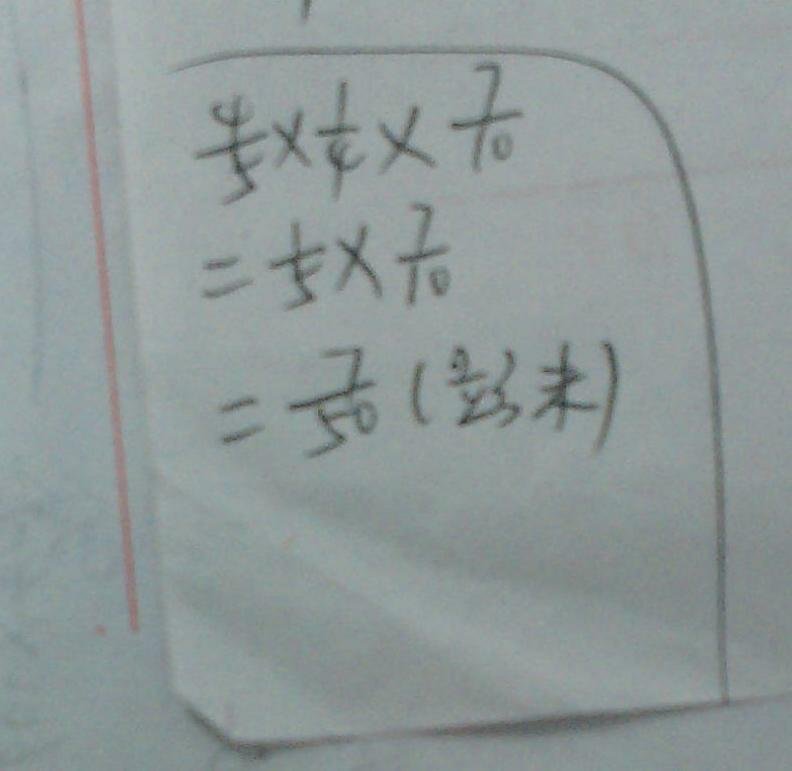 4/5×1/4×7/10
=1/5×7/10
=7/50(米)